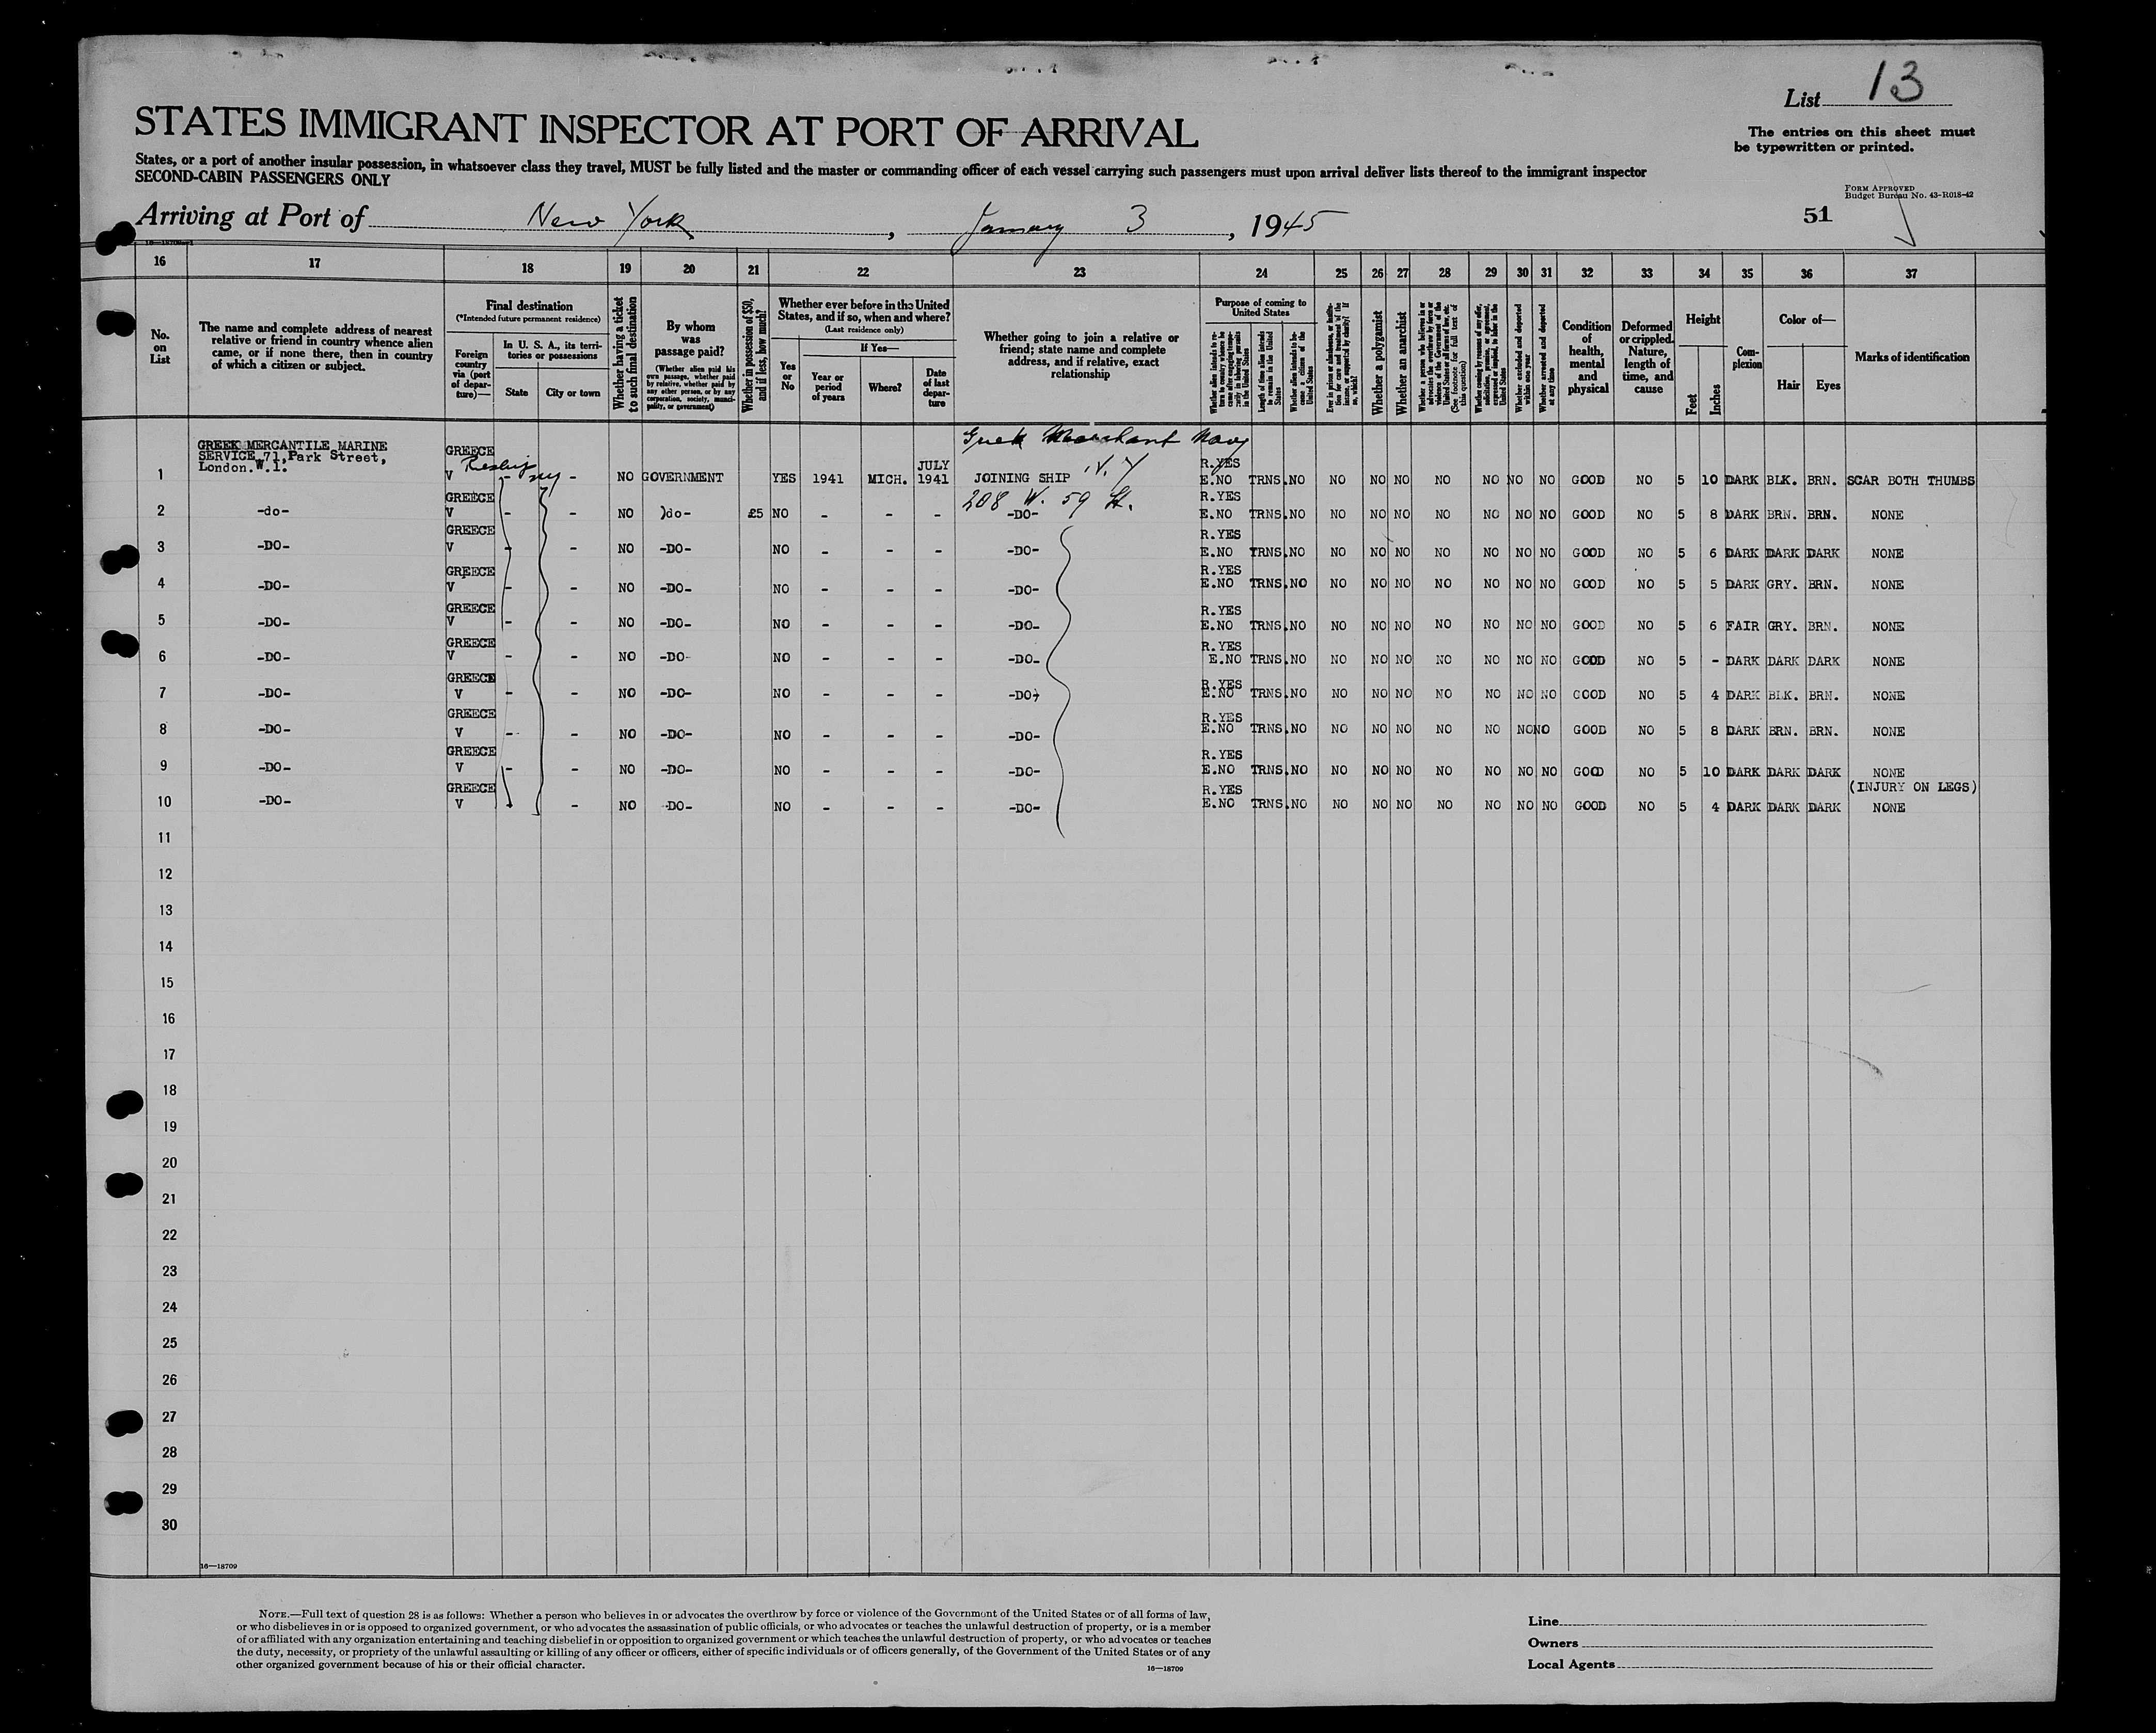 List 13
STATES IMMIGRANT INSPECTOR AT PORT OF ARRIVAL
The entries on this sheet must
be typewritten or printed.
States, or a port of another insular possession, in whatsoever class they travel, MUST be fully listed and the master or commanding officer of each vessel carrying such passengers must upon arrival deliver lists thereof to the immigrant inspector
SECOND-CABIN PASSENGERS ONLY
FORM APPROVED
Budget Bureau No. 43-R018-42
Arriving at Port of New York, January 3, 1945
51
16 17 18 19 20 21 22 23 24 25 26 27 28 29 30 31 32 33 34 35 36 37
No.
on
List
The name and complete address of nearest
relative or friend in country whence alien
came, or if none there, then in country
of which a citizen or subject.
Final destination
(*Intended future permanent residence)
Foreign
country
via (port
of depar-
ture)—
In U. S. A., its terri-
tories or possessions
State
City or town
Whether having a ticket
to such final destination
By whom
was
passage paid?
(Whether alien paid his
own passage, whether paid
by relative, whether paid by
any other person, or by any
corporation, society, munici-
pality, or government)
Whether in possession of $50,
and if less, how much?
Whether ever before in the United
States, and if so, when and where?
(Last residence only)
Yes
or
No
If Yes—
Year or
period
of years
Where?
Date
of last
depar-
ture
Whether going to join a relative or
friend; state name and complete
address, and if relative, exact
relationship
Purpose of coming to
United States
Whether alien intends to re-
turn to country whence he
came after engaging tempo-
rarily in laboring pursuits
in the United States
Length of time alien intends
to remain in the United
States
Whether alien intends to be-
come a citizen of the
United States
Ever in prison or almshouse, or institu-
tion for care and treatment of the
insane, or supported by charity? If
so, which?
Whether a polygamist
Whether an anarchist
Whether a person who believes in or
advocates the overthrow by force or
violence of the Government of the
United States or all forms of law, etc.
(See footnote for full text of
this question)
Whether coming by reason of any offer,
solicitation, promise, or agreement,
expressed or implied, to labor in the
United States
Whether excluded and deported
within one year
Whether arrested and deported
at any time
Condition
of
health,
mental
and
physical
Deformed
or crippled.
Nature,
length of
time, and
cause
Height
Feet
Inches
Com-
plexion
Color of—
Hair
Eyes
Marks of identification
Greek Merchant Navy
GREEK MERCANTILE MARINE
SERVICE 71, Park Street,
London. W.1.
1 GREECE V - NY - NO GOVERNMENT YES 1941 MICH. JULY 1941 JOINING SHIP N.Y R.YES E.NO TRNS. NO NO NO NO NO NO NO NO GOOD NO 5 10 DARK BLK. BRN. SCAR BOTH THUMBS
208 W. 59 St.
2 -do- GREECE V - - NO )do- £5 NO - - - -DO- R.YES E.NO TRNS. NO NO NO NO NO NO NO NO GOOD NO 5 8 DARK BRN. BRN. NONE
3 -DO- GREECE V - - NO -DO- NO - - - -DO- R.YES E.NO TRNS. NO NO NO NO NO NO NO NO GOOD NO 5 6 DARK DARK DARK NONE
4 -DO- GREECE V - - NO -DO- NO - - - -DO- R.YES E.NO TRNS. NO NO NO NO NO NO NO NO GOOD NO 5 5 DARK GRY. BRN. NONE
5 -DO- GREECE V - - NO -DO- NO - - - -DO- R.YES E.NO TRNS. NO NO NO NO NO NO NO NO GOOD NO 5 6 FAIR GRY. BRN. NONE
6 -DO- GREECE V - - NO -DO- NO - - - -DO- R.YES E.NO TRNS. NO NO NO NO NO NO NO NO GOOD NO 5 - DARK DARK DARK NONE
7 -DO- GREECE V - - NO -DO- NO - - - -DO- R.YES E.NO TRNS. NO NO NO NO NO NO NO NO GOOD NO 5 4 DARK BLK. BRN. NONE
8 -DO- GREECE V - - NO -DO- NO - - - -DO- R.YES E.NO TRNS. NO NO NO NO NO NO NO NO GOOD NO 5 8 DARK BRN. BRN. NONE
9 -DO- GREECE V - - NO -DO- NO - - - -DO- R.YES E.NO TRNS. NO NO NO NO NO NO NO NO GOOD NO 5 10 DARK DARK DARK NONE
(INJURY ON LEGS)
10 -DO- GREECE V - - NO -DO- NO - - - -DO- R.YES E.NO TRNS. NO NO NO NO NO NO NO NO GOOD NO 5 4 DARK DARK DARK NONE
11
12
13
14
15
16
17
18
19
20
21
22
23
24
25
26
27
28
29
30
16—18709
NOTE.—Full text of question 28 is as follows: Whether a person who believes in or advocates the overthrow by force or violence of the Government of the United States or of all forms of law,
or who disbelieves in or is opposed to organized government, or who advocates the assassination of public officials, or who advocates or teaches the unlawful destruction of property, or is a member
of or affiliated with any organization entertaining and teaching disbelief in or opposition to organized government or which teaches the unlawful destruction of property, or who advocates or teaches
the duty, necessity, or propriety of the unlawful assaulting or killing of any officer or officers, either of specific individuals or of officers generally, of the Government of the United States or of any
other organized government because of his or their official character.
16—18709
Line
Owners
Local Agents